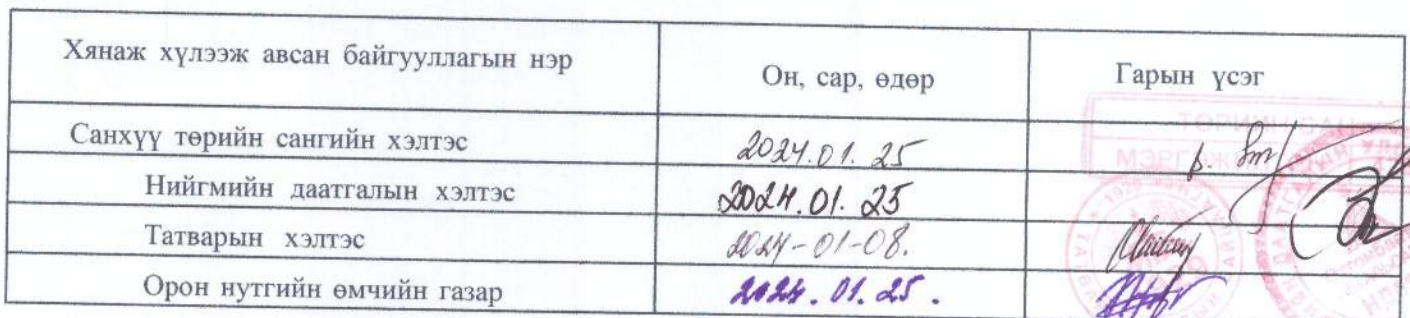 Хянаж хүлээж авсан байгууллагын нэр Он, сар, өдөр Гарын үсэг
Санхүү төрийн сангийн хэлтэс 2024.01.25
Нийгмийн даатгалын хэлтэс 2024.01.25
Татварын хэлтэс 2024-01-08.
Орон нутгийн өмчийн газар 2024.01.25.